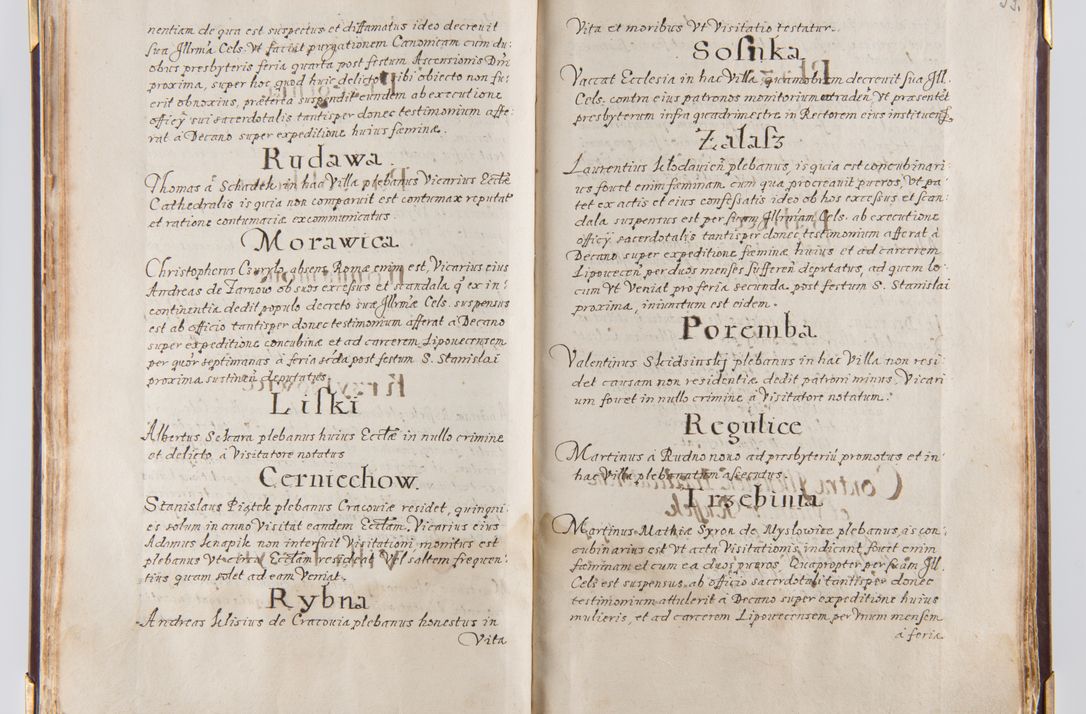 nentiam de qua est suspectus et diffamatus ideo decreuit
sua Jllrma Cels. Vt faciat purgationem Canonicam cum du-
obus presbyteris feria quarta post festum Ascensionis Dni
proxima, super hoc quod huic delicto sibi obiecto non fu-
erit obnoxius, præterea suspendit eundem ab executione
officÿ sui sacerdotalis tantisper donec testimonium affe-
rat à Decano super expeditione huius fæminæ.
Rudawa.
Thomas à Schadek in hac Villa plebanus Vicarius Ecclæ
Cathedralis is quia non comparuit est contumax reputat
et ratione contumaciæ excommunicatus.
Morawica
Christophorus Csuryło absens Romæ enim est, Vicarius eius
Andreas de Tarnow ob suos excessus et scandala q̃ ex in-
continentia dedit populo decreto suæ Jllrmæ Cels. suspensus
est ab officio tantisper donec testimonium afferat à Decano
super expeditione concubinæ et ad carcerem Lipouecensem
per quor septimanas à feria scda post festum S. Stanislai
proxima sustineñ deputatus.
Liski
Albertus Sekara plebanus huius Ecclæ in nullo crimine
et delicto à Visitatore notatus
Cerniechow.
Stanislaus Piątek plebanus Cracouiæ residet, quinqui-
es solum in anno Visitat eandem Ecclam, Vicarius eius
Adamus Knapik non interfuit Visitationi, monitus est
plebanus Vt circa Ecclam resideat Vel saltem frequen-
tius quam solet ad eam Veniat.
Rybna
Andreas Klisius de Cracouia plebanus honestus in
Vita
Vita et moribus Vt Visitatio testatur.
Sosnka
Vaccat Ecclesia in hac Villa, quamobrem decreuit sua Jll.
Cels. contra eius patronos monitorium extradeñ Vt præsentet
presbyterum infra quadrimestre in Rectorem eius instituend
Załasz
Laurentius Kłodauien plebanus, is quia est concubinari-
us fouet enim fæminam cum qua procreauit pueros, Vt pa-
tet ex actis et eius confessatis ideo ob hos excessus et scan-
dala suspensus est per suam Jllrmam Cels. ab executione
officÿ sacerdotalis tantisper donec testimonium afferat à
Decano super expeditione fæminæ huius et ad carcerem
Lipouecen per duos menses sufferen deputatus, ad quem lo-
cum Vt Veniat pro feria secunda post festum S. Stanislai
proxima, iniunctum est eidem.
Poremba
Valentinus Skidsinskj plebanus in hac Villa non resi-
det causam non residentiæ dedit patroni minus, Vicari
um fouet in nullo crimine à Visitatore notatum.
Regulice
Martinus à Rudno nouo ad presbyteriũ promotus et in
hac Villa plebanatum assecutus
Trzebinia
Martinus Mathiæ Syron de Mysłowice plebanus, is con-
cubinarius est Vt acta Visitationis indicant fouet enim
fæminam et cum ea duos pueros. Quapropter per suam Jll.
Cels est suspensus ab officio sacerdotali tantisper donec
testimonium attulerit à Decano super expeditione huius
mulieris, et ad carcerem Lipouecensem per Vnum mensem
à feria